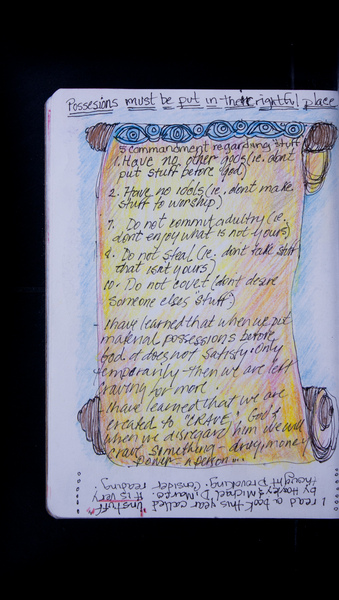 Possesions must be put in their rightful place
5 commandment regarding stuff
1. Have no other gods (ie. don't
put stuff before God)
2. Have no idols (ie. dont make
stuff to worship)
7. Do not commit adultry (ie.
dont enjoy what is not yours)
8. Do not steal (ie. dont take stuff
that isnt yours)
10. Do not covet (dont desire
someone elses "stuff")
- I have learned that when we put
material possessions before
God it does not satisfy. only
temporarily - then we are left
craving for more.
- I have learned that we are
created to "CRAVE" God &
when we disregard him we will
crave something - drug, money
power - a person...
I read a book this year called "Unstuff"
by Hayley & Michael D. It is very
thought provoking. Consider reading.